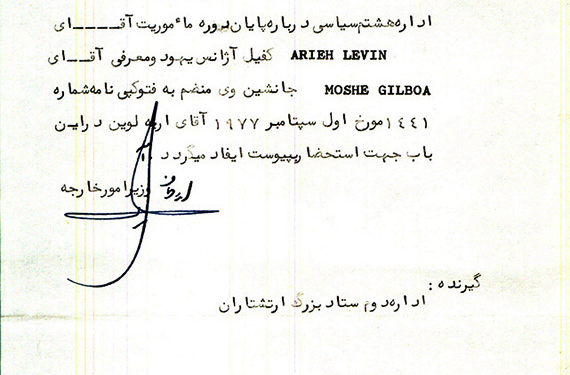 اداره هشتم سیاسی درباره پایان دوره مأموریت آقــــای
ARIEH LEVIN کفیل آژانس یهود و معرفی آقــای
MOSHE GILBOA جانشین وی منضم به فتوکپی نامه شماره
۱۴۴۱ مورخ اول سپتامبر ۱۹۷۷ آقای اریه لوین در این
باب جهت استحضار بپیوست ایفاد میگردد .
وزیر امور خارجه
گیرنده :
اداره دوم ستاد بزرگ ارتشتاران